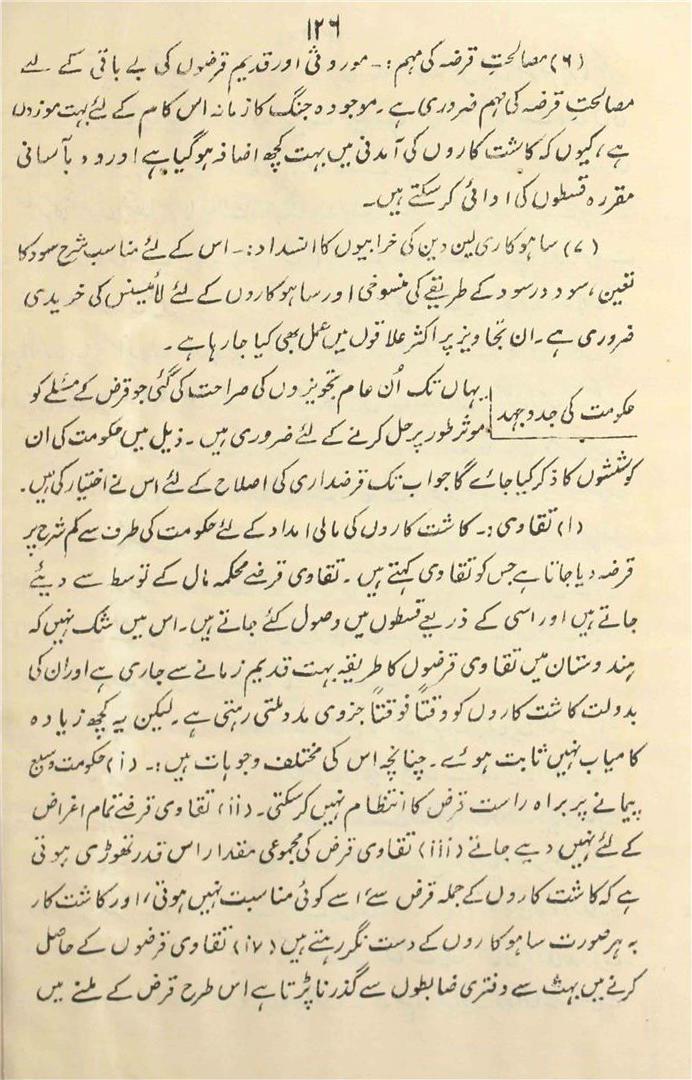 ۱۲۶
(۶) مصالحتِ قرضہ کی مہم :۔ موروثی اور قدیم قرضوں کی بے باقی کے لئے
مصالحتِ قرضہ کی مہم ضروری ہے۔ موجودہ جنگ کا زمانہ اس کام کے لئے بہت موزوں
ہے، کیوں کہ کاشت کاروں کی آمدنی میں بہت کچھ اضافہ ہو گیا ہے اور وہ بآسانی
مقررہ قسطوں کی ادائی کر سکتے ہیں۔
(۷) ساہوکاری لین دین کی خرابیوں کا انسداد :۔ اس کے لئے مناسب شرح سود کا
تعین، سود در سود کے طریقے کی منسوخی اور ساہوکاروں کے لئے لائیسنس کی خریدی
ضروری ہے۔ ان تجاویز پر اکثر علاقوں میں عمل بھی کیا جا رہا ہے۔
حکومت کی جدوجہد
یہاں تک اُن عام تجویزوں کی صراحت کی گئی جو قرض کے مسئلے کو
موثر طور پر حل کرنے کے لئے ضروری ہیں۔ ذیل میں حکومت کی ان
کوششوں کا ذکر کیا جائے گا جو اب تک قرضداری کی اصلاح کے لئے اس نے اختیار کی ہیں۔
(۱) تقاوی :۔ کاشت کاروں کی مالی امداد کے لئے حکومت کی طرف سے کم شرح پر
قرضہ دیا جاتا ہے جس کو تقاوی کہتے ہیں۔ تقاوی قرضے محکمہ مال کے توسط سے دیئے
جاتے ہیں اور اسی کے ذریعے قسطوں میں وصول کئے جاتے ہیں۔ اس میں شک نہیں کہ
ہندوستان میں تقاوی قرضوں کا طریقہ بہت قدیم زمانے سے جاری ہے اور ان کی
بدولت کاشت کاروں کو وقتاً فوقتاً جزوی مدد ملتی رہتی ہے۔ لیکن یہ کچھ زیادہ
کامیاب نہیں ثابت ہوئے۔ چنانچہ اس کی مختلف وجوہات ہیں :۔ (i) حکومت وسیع
پیمانے پر براہ راست قرض کا انتظام نہیں کر سکتی۔ (ii) تقاوی قرضے تمام اغراض
کے لئے نہیں دیے جاتے (iii) تقاوی قرض کی مجموعی مقدار اس قدر تھوڑی ہوتی
ہے کہ کاشت کاروں کے جملہ قرض سے اسے کوئی مناسبت نہیں ہوتی، اور کاشت کار
بہ ہر صورت ساہوکاروں کے دست نگر رہتے ہیں (iv) تقاوی قرضوں کے حاصل
کرنے میں بہت سے دفتری ضابطوں سے گذرنا پڑتا ہے اس طرح قرض کے ملنے میں